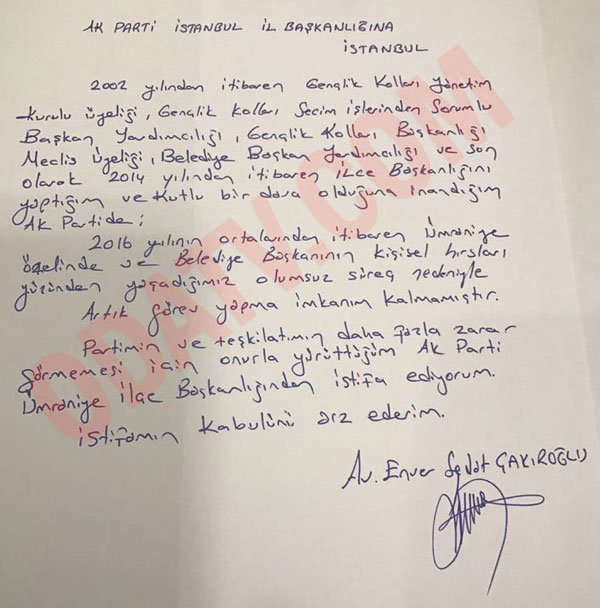 AK PARTİ İSTANBUL İL BAŞKANLIĞINA
İSTANBUL
2002 yılından itibaren Gençlik Kolları Yönetim
Kurulu Üyeliği, Gençlik Kolları Seçim işlerinden Sorumlu
Başkan Yardımcılığı, Gençlik Kolları Başkanlığı
Meclis Üyeliği, Belediye Başkan Yardımcılığı ve son
olarak 2014 yılından itibaren ilçe Başkanlığını
yaptığım ve Kutlu bir dava olduğuna inandığım
AK Partide;
2016 yılının ortalarından itibaren Ümraniye
özelinde ve Belediye Başkanının Kişisel hırsları
yüzünden yaşadığımız olumsuz süreç nedeniyle
Artık görev yapma imkanım kalmamıştır.
Partimin ve teşkilatımın daha fazla zarar
görmemesi için onurla yürüttüğüm Ak Parti
Ümraniye ilçe Başkanlığından istifa ediyorum.
istifamın kabulünü arz ederim.
Av. Enver Sedat ÇAKIROĞLU
ODATV.COM